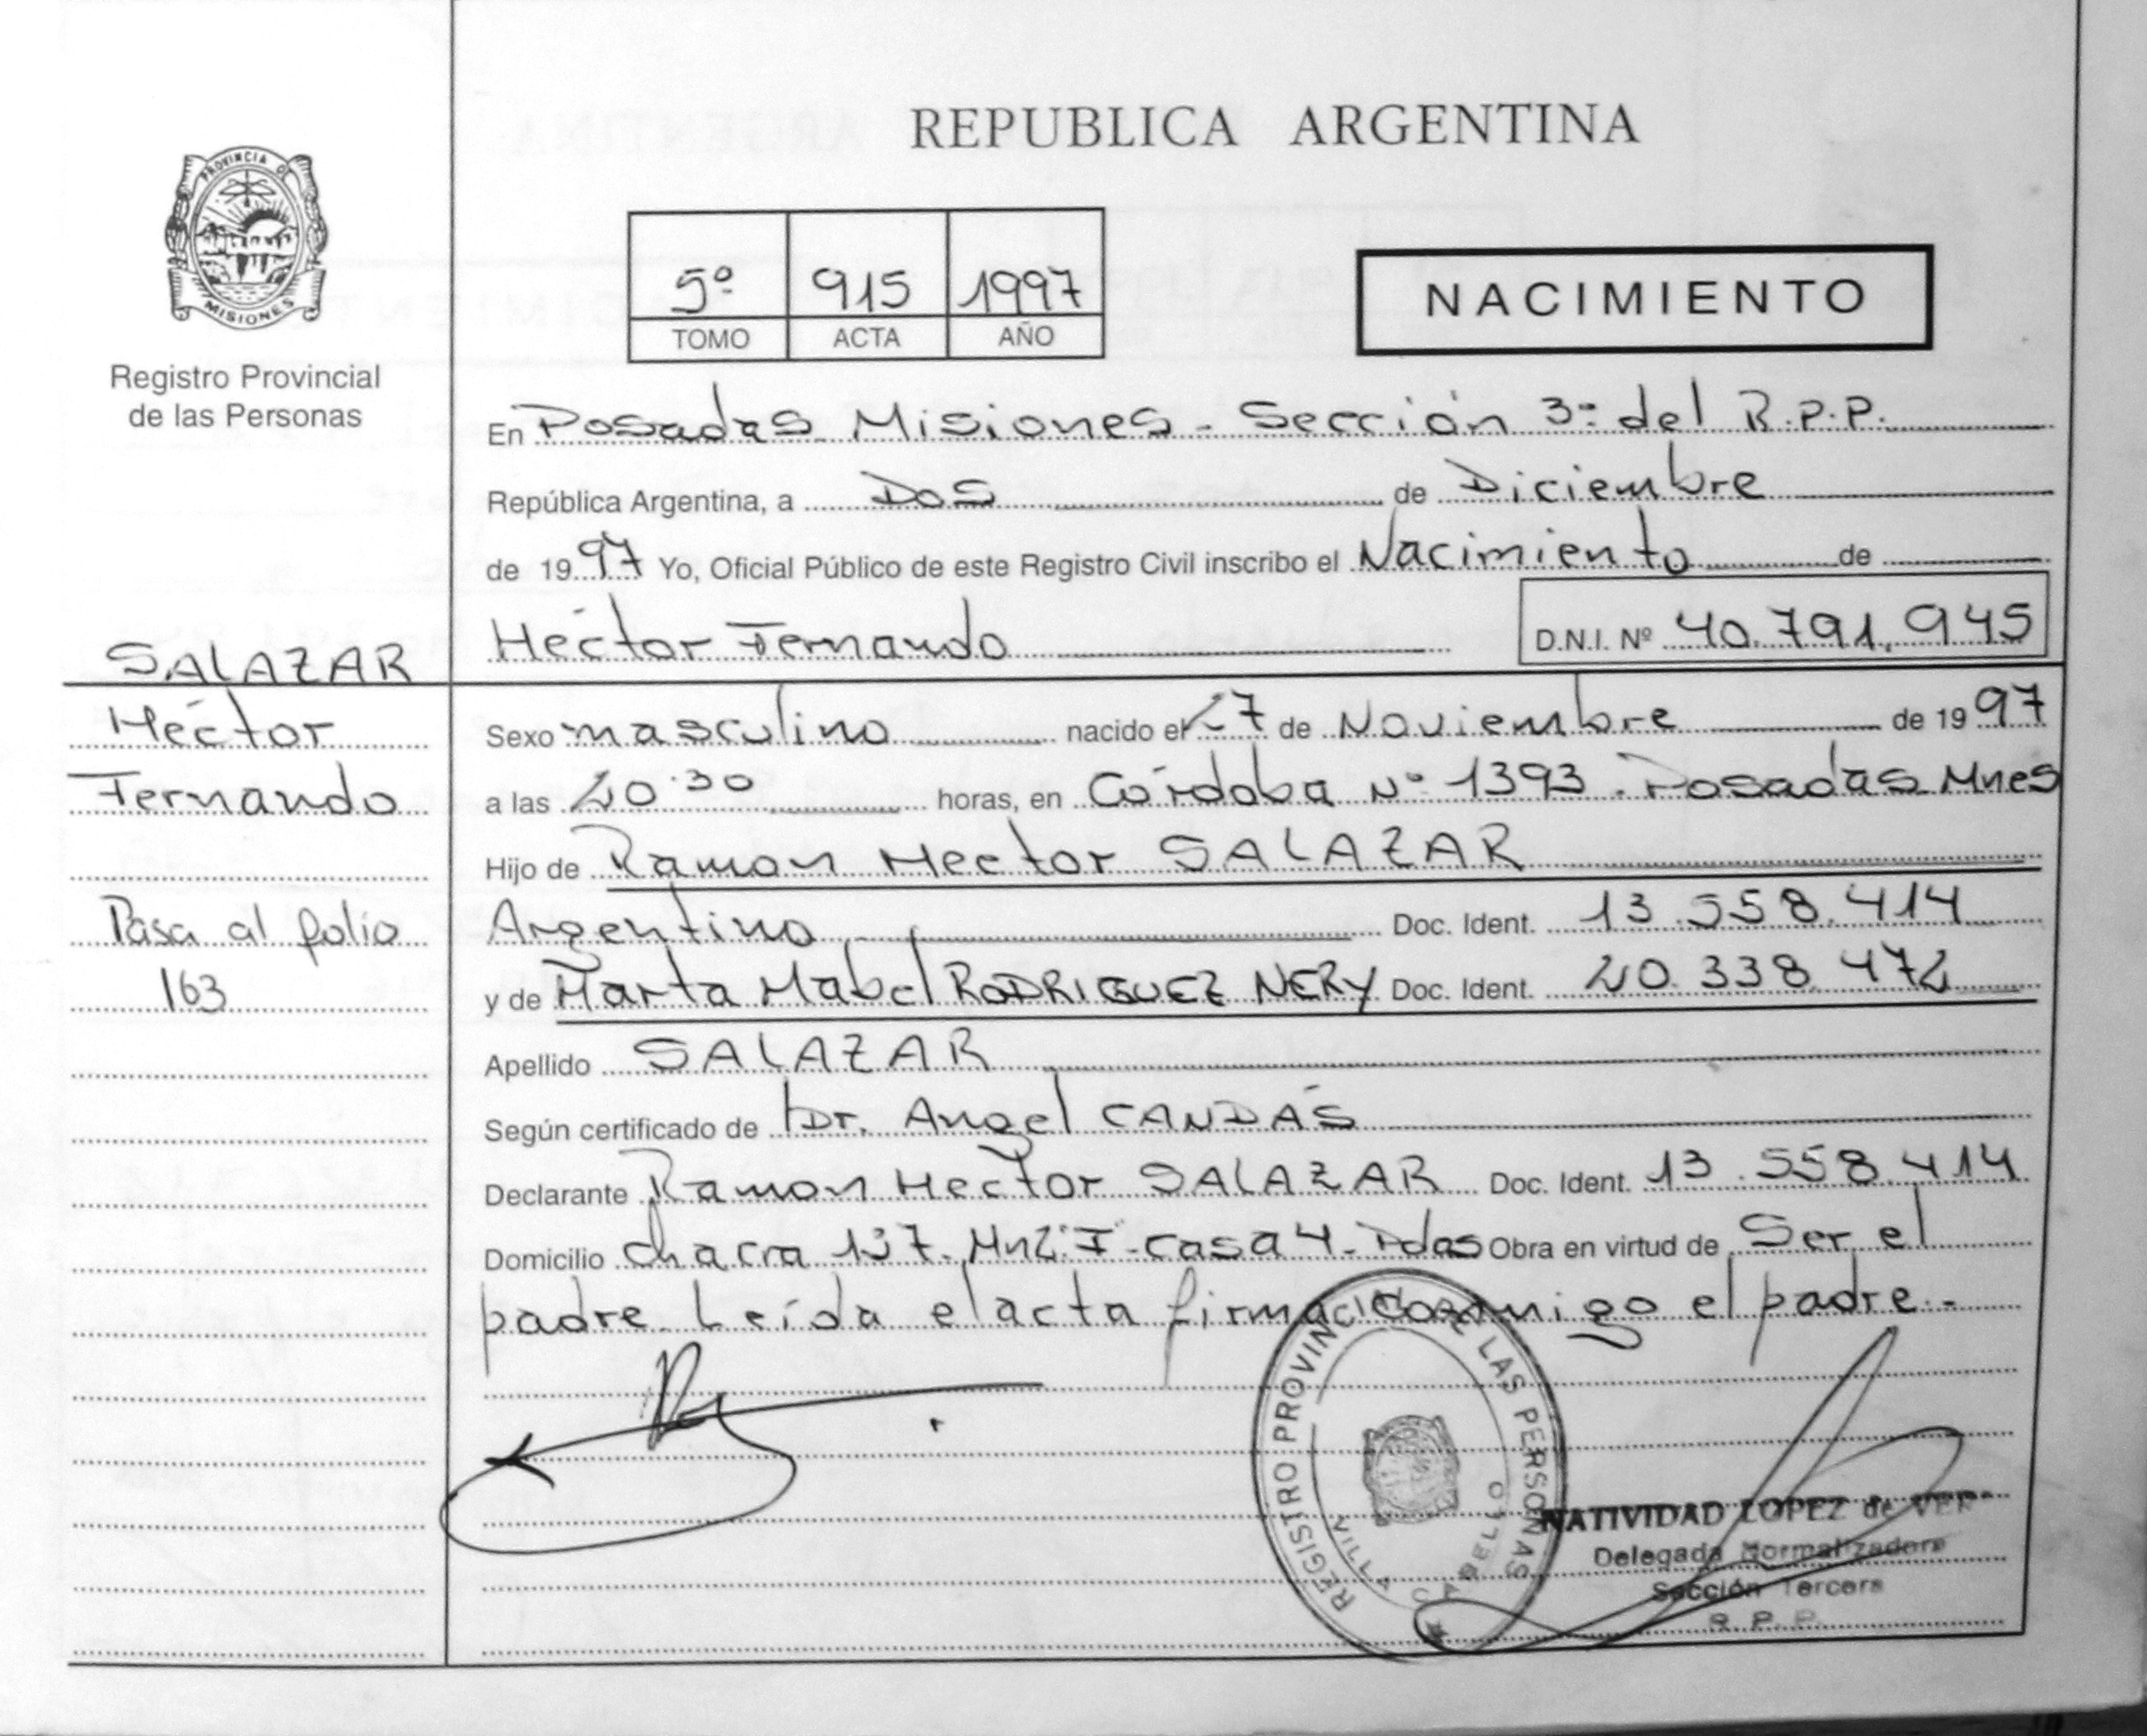 REPUBLICA ARGENTINA
PROVINCIA DE MISIONES
Registro Provincial
de las Personas
5º 915 1997
TOMO ACTA AÑO
NACIMIENTO
En Posadas Misiones - Sección 3ª del R.P.P.
República Argentina, a Dos de Diciembre
de 1997 Yo, Oficial Público de este Registro Civil inscribo el Nacimiento de
Héctor Fernando D.N.I. Nº 40.791.945
SALAZAR
Héctor
Fernando
Pasa al folio
163
Sexo masculino nacido el 27 de Noviembre de 1997
a las 20:30 horas, en Córdoba Nº 1393. Posadas Mnes
Hijo de Ramon Hector SALAZAR
Argentino Doc. Ident. 13.558.414
y de Marta Mabel RODRIGUEZ NERY Doc. Ident. 20.338.472
Apellido SALAZAR
Según certificado de Dr. Angel CANDÁS
Declarante Ramon Hector SALAZAR Doc. Ident. 13.558.414
Domicilio Chacra 137. Mnz. I - casa 4 - Pdas Obra en virtud de Ser el
padre. Leída el acta firma conmigo el padre.-
REGISTRO PROVINCIAL DE LAS PERSONAS
VILLA CABELLO
NATIVIDAD LOPEZ de
Delegada Normalizadora
Sección Tercera
R. P. P.